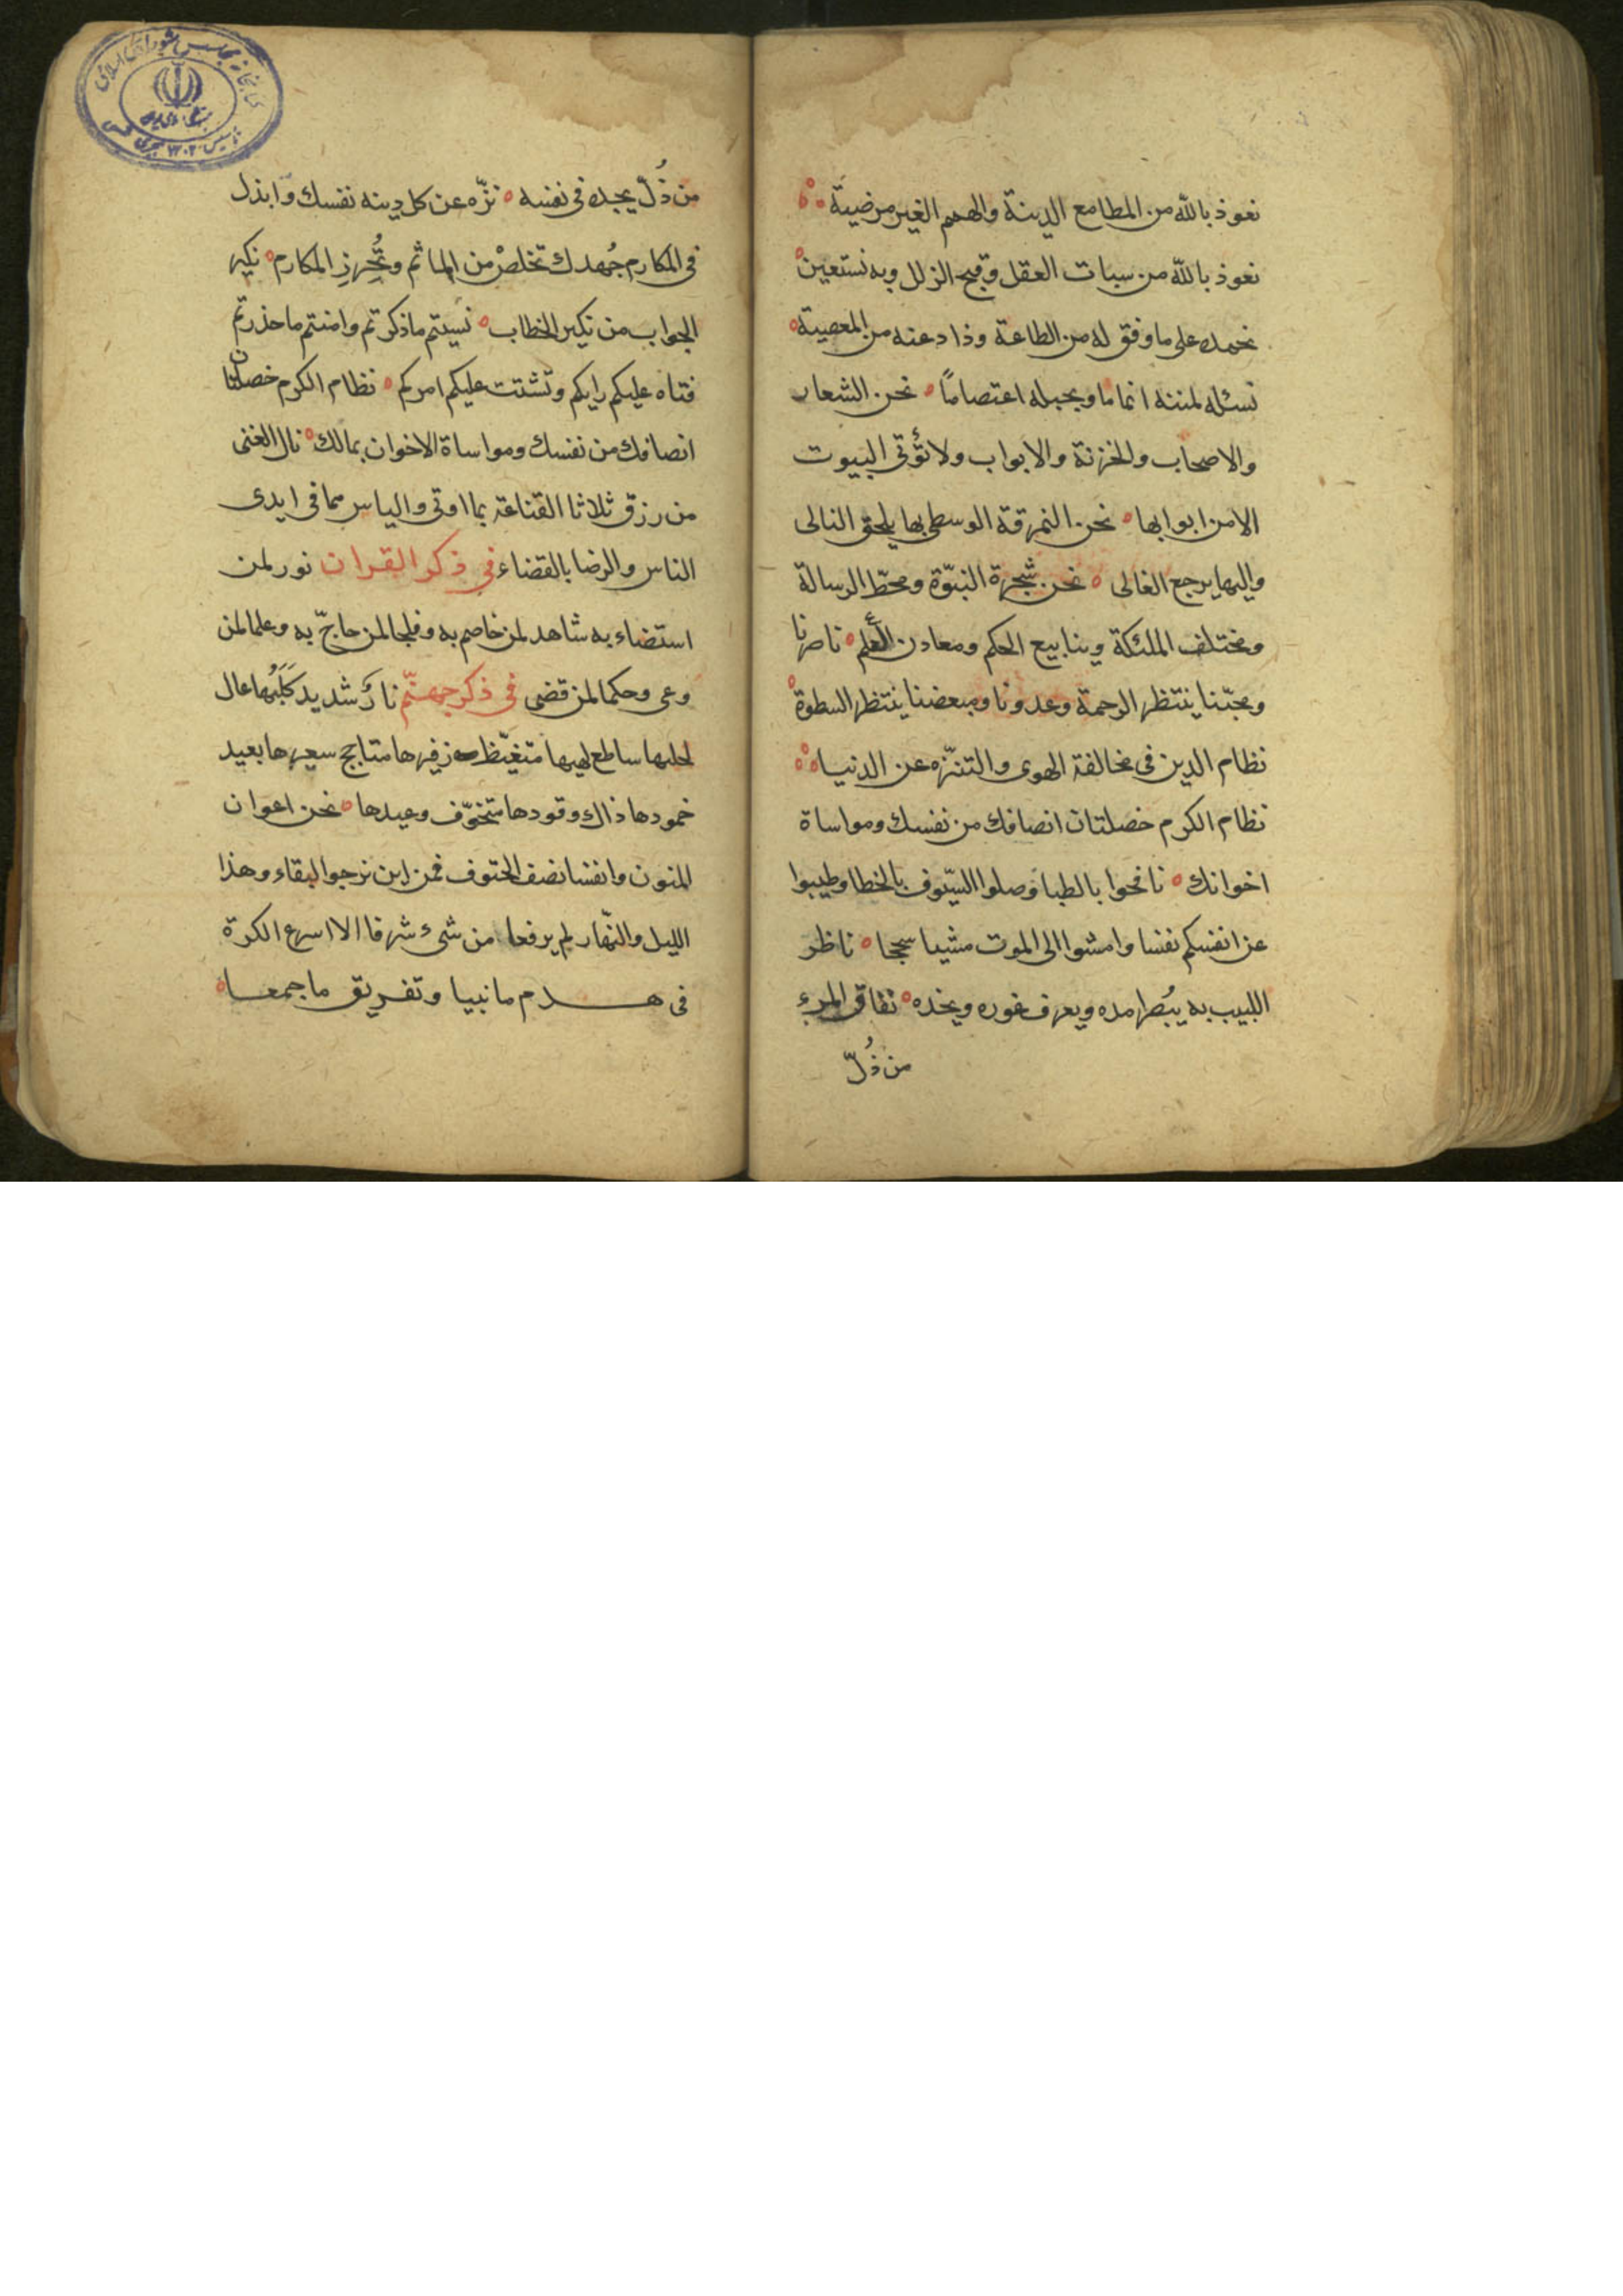 نعوذ بالله من المطامع الدينة والهمم الغير مرضية
نعوذ بالله من سبات العقل وقبح الزلل وبه نستعين
نحمده على ما وفق له من الطاعة وذاد عنه من المعصية
نسئله لمننه اتماما وبحبله اعتصامًا نحن الشعار
والاصحاب والخزنة والابواب ولا تؤتى البيوت
الا من ابوابها نحن النمرقة الوسطى بها يلحق التالى
واليها يرجع الغالى نحن شجرة النبوّة ومحطّ الرسالة
ومختلف الملئكة وينابيع الحكم ومعادن العلم ناصرنا
ومحبّنا ينتظر الرحمة وعدونا ومبغضنا ينتظر السطوة
نظام الدين فى مخالفة الهوى والتنزّه عن الدنيا
نظام الكرم خصلتان انصافك من نفسك ومواساة
اخوانك نافحوا بالظبا وصلوا السّيوف بالخطا وطيبوا
عن انفسكم نفسا وامشوا الى الموت مشيا سجحا ناظر
اللبيب به يبُصر امده ويعرف غوره ونجده نفاق المرء
من ذُلّ
من ذُلّ يجده فى نفسه نزّه عن كل دينه نفسك وابذل
فى المكارم جُهدك تخلصْ من الماثم وتُحرزِ المكارم نكير
الجواب من نكير الخطاب نسيتم ما ذكرتم وامنتم ما حذرتم
فتاه عليكم رايكم وتشتت عليكم امركم نظام الكرم خصلتان
انصافك من نفسك ومواساة الاخوان بمالك نال الغنى
من رزق ثلاثا القناعة بما اوتى والياس مما فى ايدى
الناس والرضا بالقضاء فى ذكر القران نور لمن
استضاء به شاهد لمن خاصم به وفلجا لمن حاجّ به وعلما لمن
وعى وحكما لمن قضى فى ذكر جهنّم نارٌ شديد كَلَبُها عال
لجبها ساطع لهبها متغيّظ زفيرها متاجج سعيرها بعيد
خمودها ذاك وقودها متخوّف وعيدها نحن اعوان
المنون وانفسنا نصف الحتوف فمن اين نرجوا البقاء وهذا
الليل والنّهار لم يرفعا من شىء شرفا الا اسرع الكرة
فى هدم ما نبيا وتفريق ما جمعا